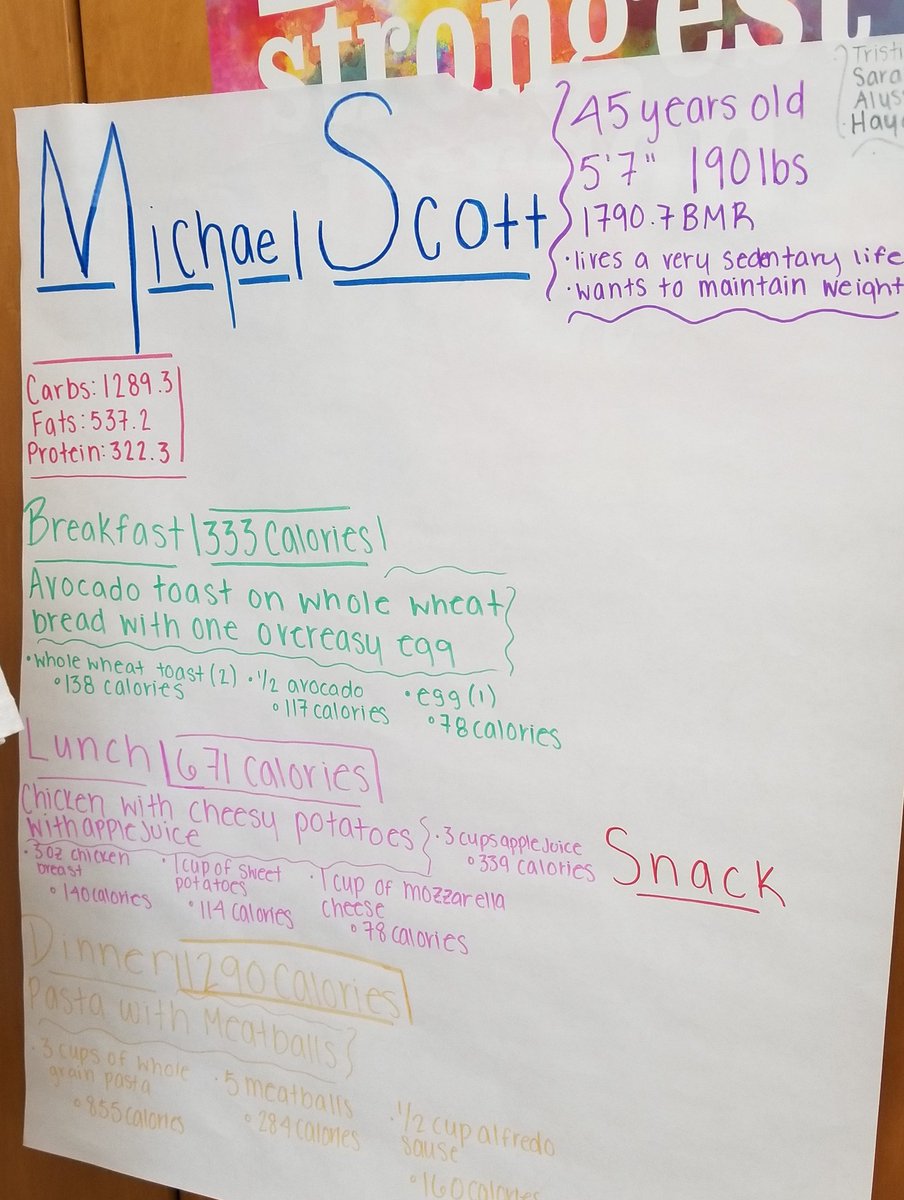 strongest
Michael Scott
45 years old
5'7" 190lbs
1790.7 BMR
•lives a very sedentary life
•wants to maintain weight
Carbs: 1289.3
Fats: 537.2
Protein: 322.3
Breakfast 333 Calories
Avocado toast on whole wheat
bread with one overeasy egg
•whole wheat toast (2)
138 calories
•1/2 avocado
117 calories
•egg (1)
78 calories
Lunch 671 Calories
Chicken with cheesy potatoes
with apple juice
•3 cups apple juice
339 calories
•3oz chicken
breast
140 calories
•1 cup of sweet
potatoes
114 calories
•1 cup of mozzarella
cheese
78 calories
Snack
Dinner 1290 Calories
Pasta with Meatballs
•3 cups of whole
grain pasta
855 calories
•5 meatballs
284 calories
•1/2 cup alfredo
sause
160 calories